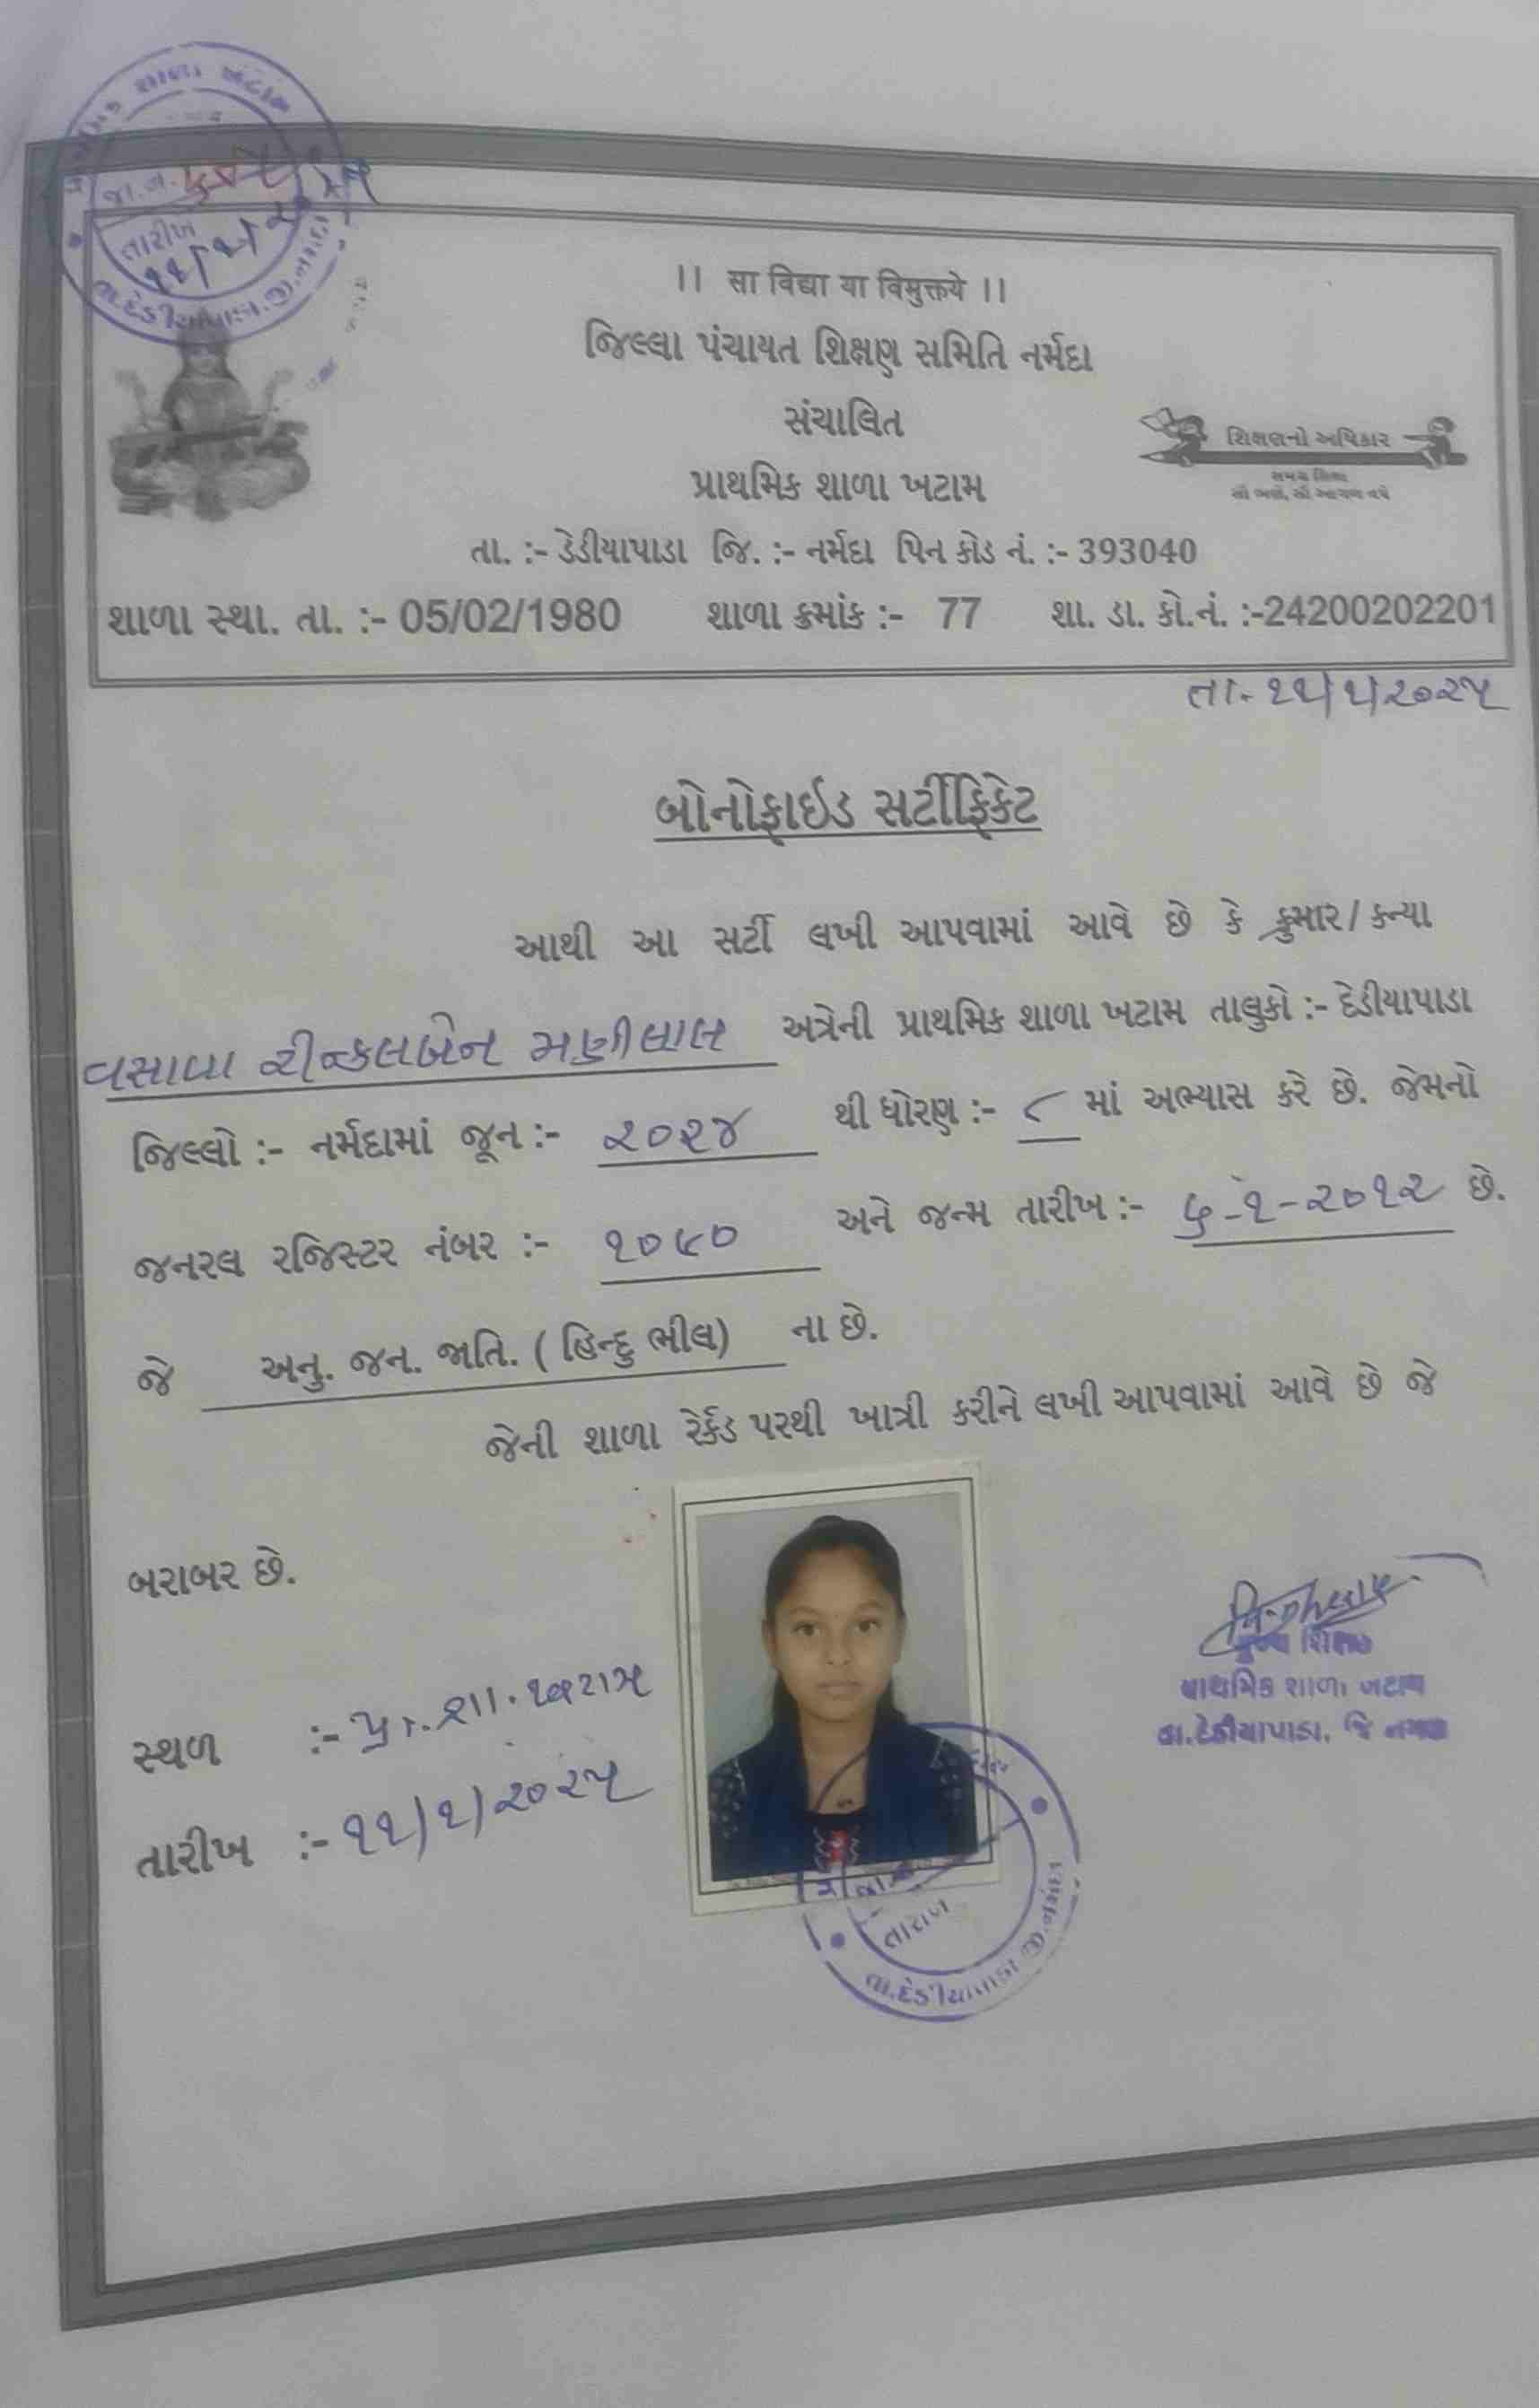 શાળા ખટામ
જા.નં.
તારીખ
તા.દેડીયાપાડા.જી.નર્મદા
।। सा विद्या या विमुक्तये ।।
જિલ્લા પંચાયત શિક્ષણ સમિતિ નર્મદા
સંચાલિત
શિક્ષણનો અધિકાર
સૌ ભણે, સૌ આગળ વધે
પ્રાથમિક શાળા ખટામ
તા. :- ડેડીયાપાડા જિ. :- નર્મદા પિન કોડ નં. :- 393040
શાળા સ્થા. તા. :- 05/02/1980 શાળા ક્રમાંક :- 77 શા. ડા. કો.નં. :-24200202201
તા.- ૧૧/૧/૨૦૨૫
બોનોફાઈડ સર્ટીફિકેટ
આથી આ સર્ટી લખી આપવામાં આવે છે કે કુમાર / કન્યા
વસાવા રીન્કલબેન મણીલાલ અત્રેની પ્રાથમિક શાળા ખટામ તાલુકો :- દેડીયાપાડા
જિલ્લો :- નર્મદામાં જૂન :- ૨૦૨૪ થી ધોરણ :- ૮ માં અભ્યાસ કરે છે. જેમનો
જનરલ રજિસ્ટર નંબર :- ૧૦૯૦ અને જન્મ તારીખ :- ૬-૧-૨૦૧૨ છે.
જે અનુ. જન. જાતિ. ( હિન્દુ ભીલ) ના છે.
જેની શાળા રેર્કડ પરથી ખાત્રી કરીને લખી આપવામાં આવે છે જે
બરાબર છે.
સ્થળ :- પ્રા. શા. ખટામ
તારીખ :- ૧૧/૧/૨૦૨૫
મુખ્ય શિક્ષક
પ્રાથમિક શાળા ખટામ
તા.દેડીયાપાડા, જિ નર્મદા
તારીખ
તા.દેડીયાપાડા જી.નર્મદા